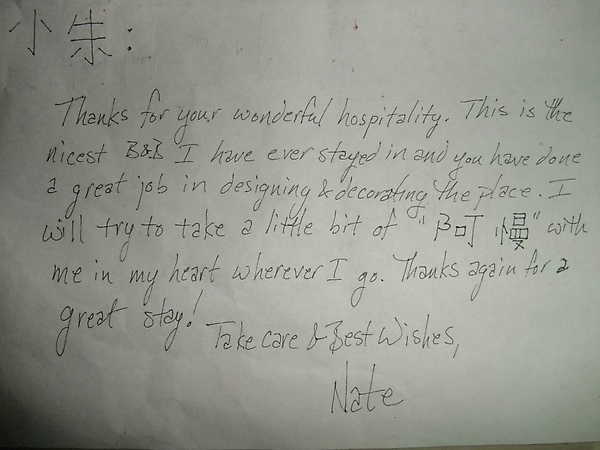 小朱:
Thanks for your wonderful hospitality. This is the
nicest B&B I have ever stayed in and you have done
a great job in designing & decorating the place. I
will try to take a little bit of "阿慢" with
me in my heart wherever I go. Thanks again for a
great stay!
Take care & Best Wishes,
Nate